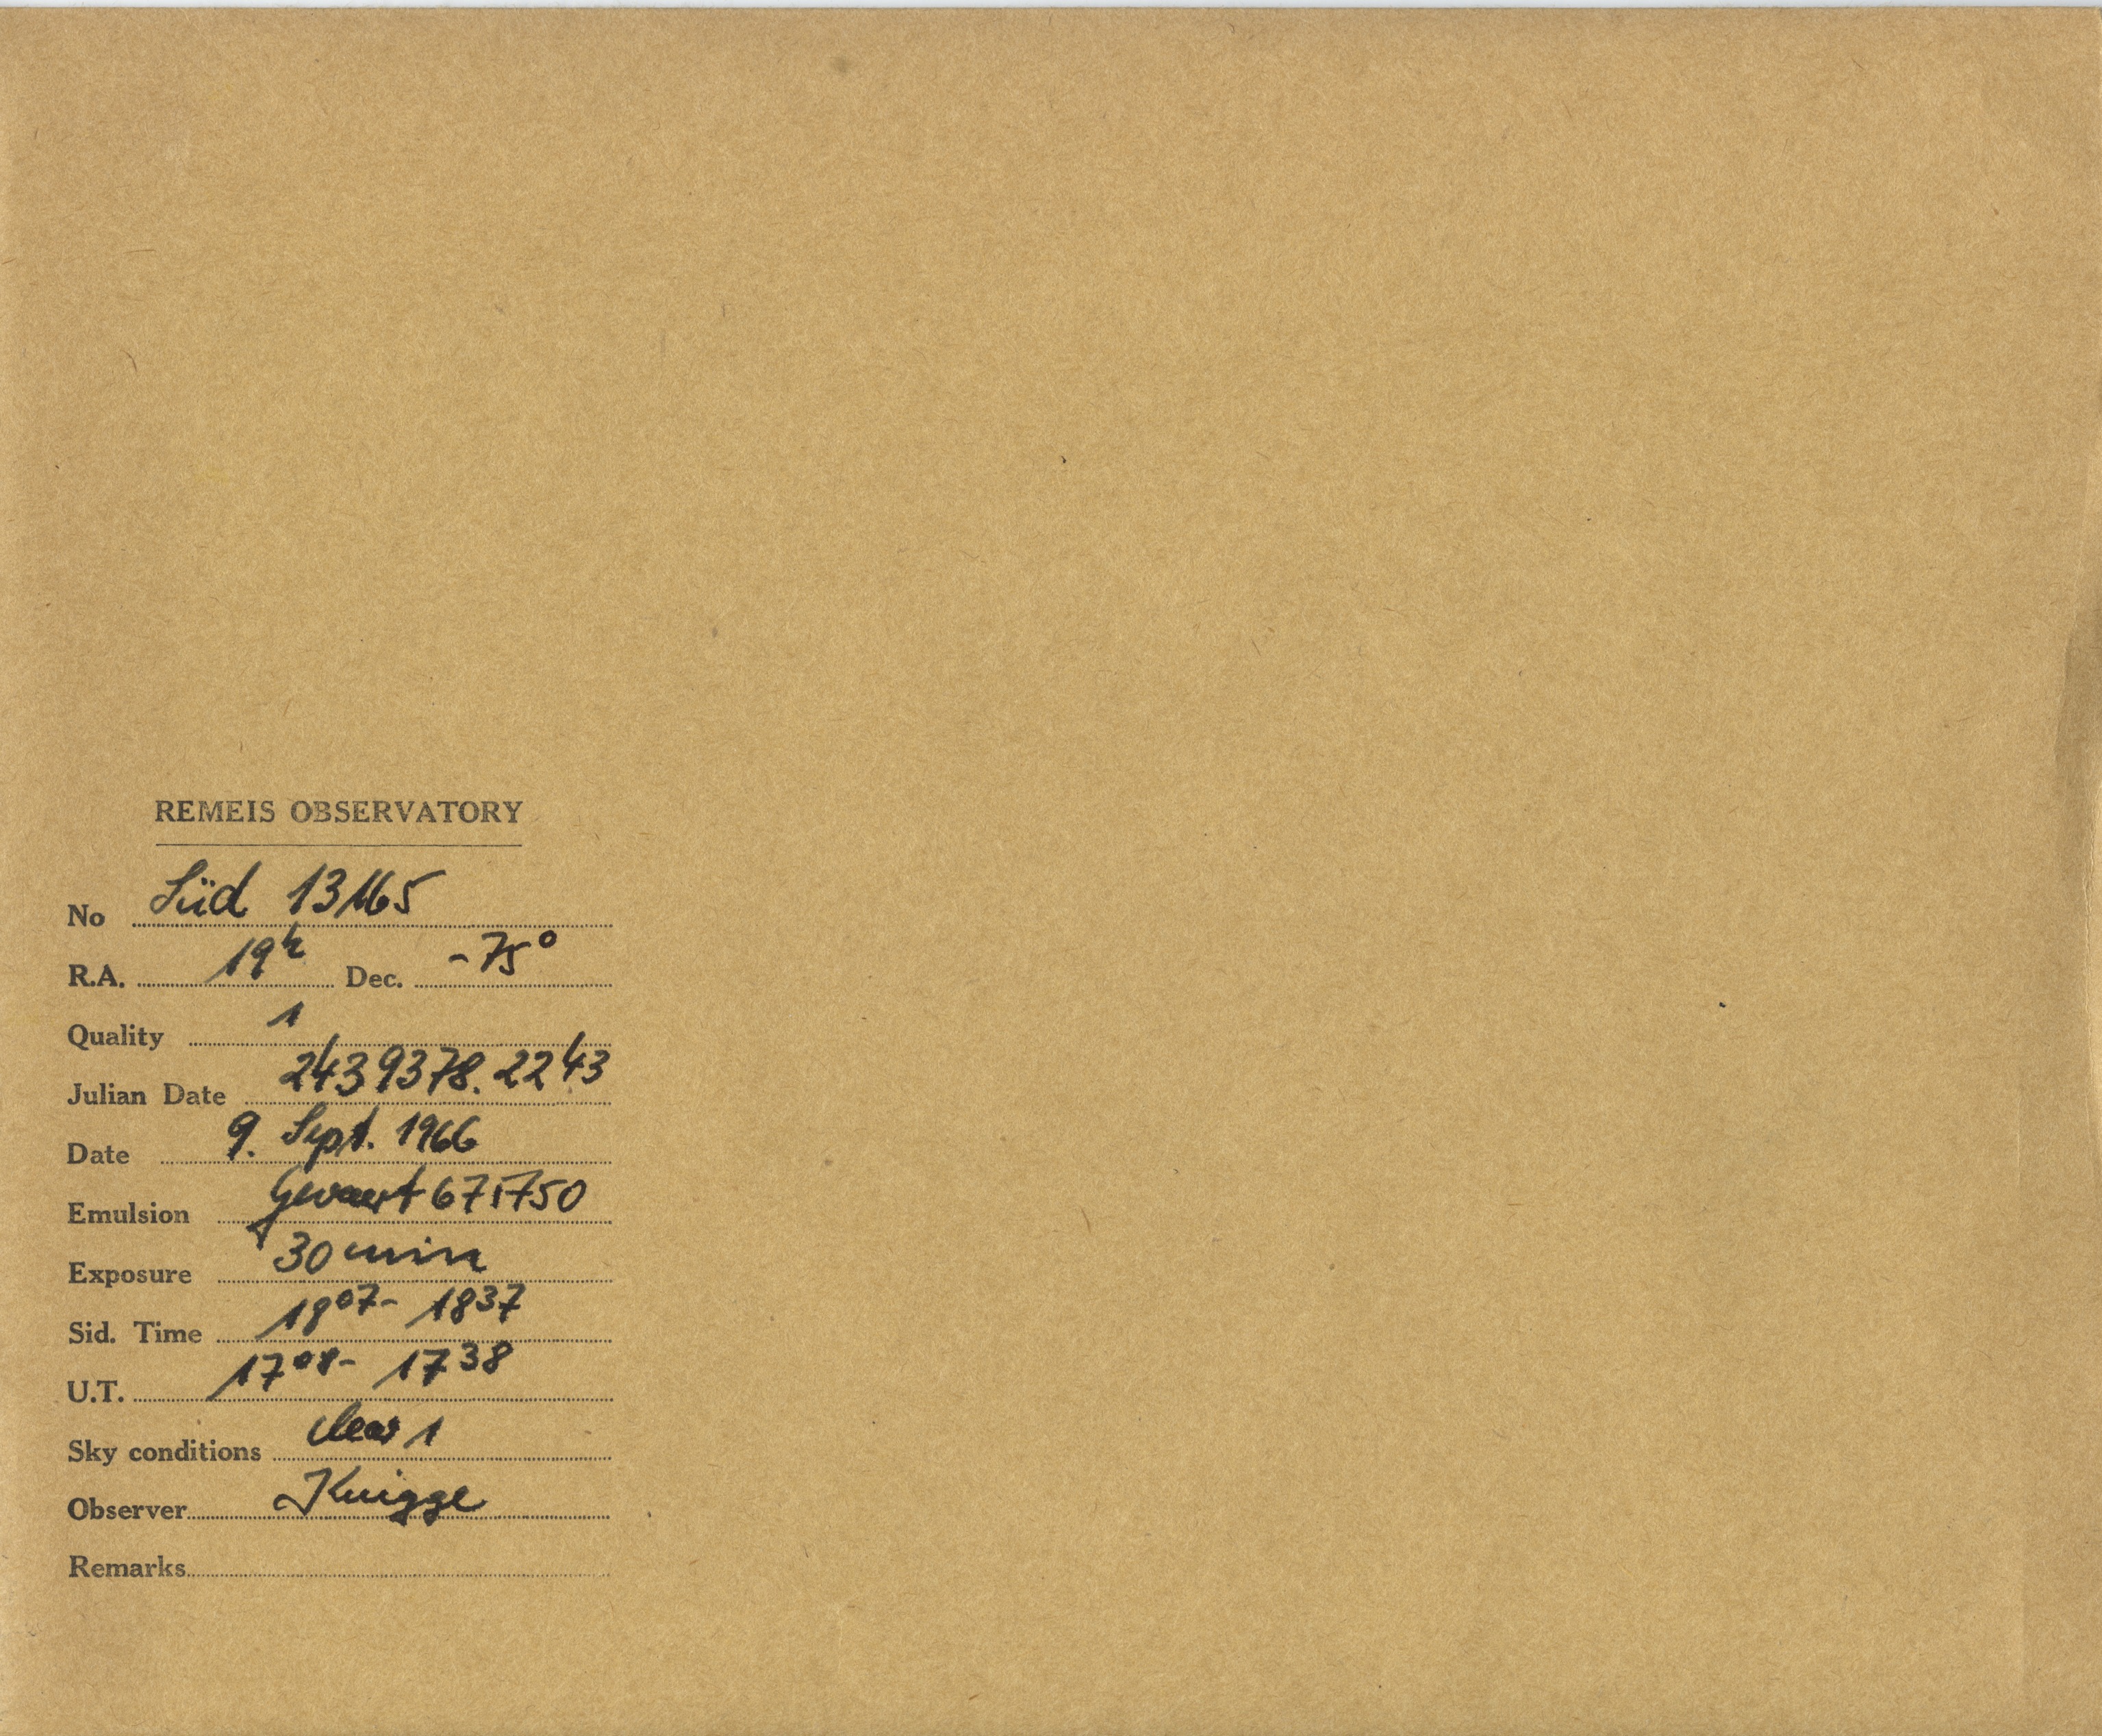 REMEIS OBSERVATORY
No Süd 13165
R.A. 19h Dec. -75°
Quality 1
Julian Date 2439378.2243
Date 9. Sept. 1966
Emulsion Gevaert 67A50
Exposure 30 min
Sid. Time 18 07 - 18 37
U.T. 17 08 - 17 38
Sky conditions clear 1
Observer Knigge
Remarks